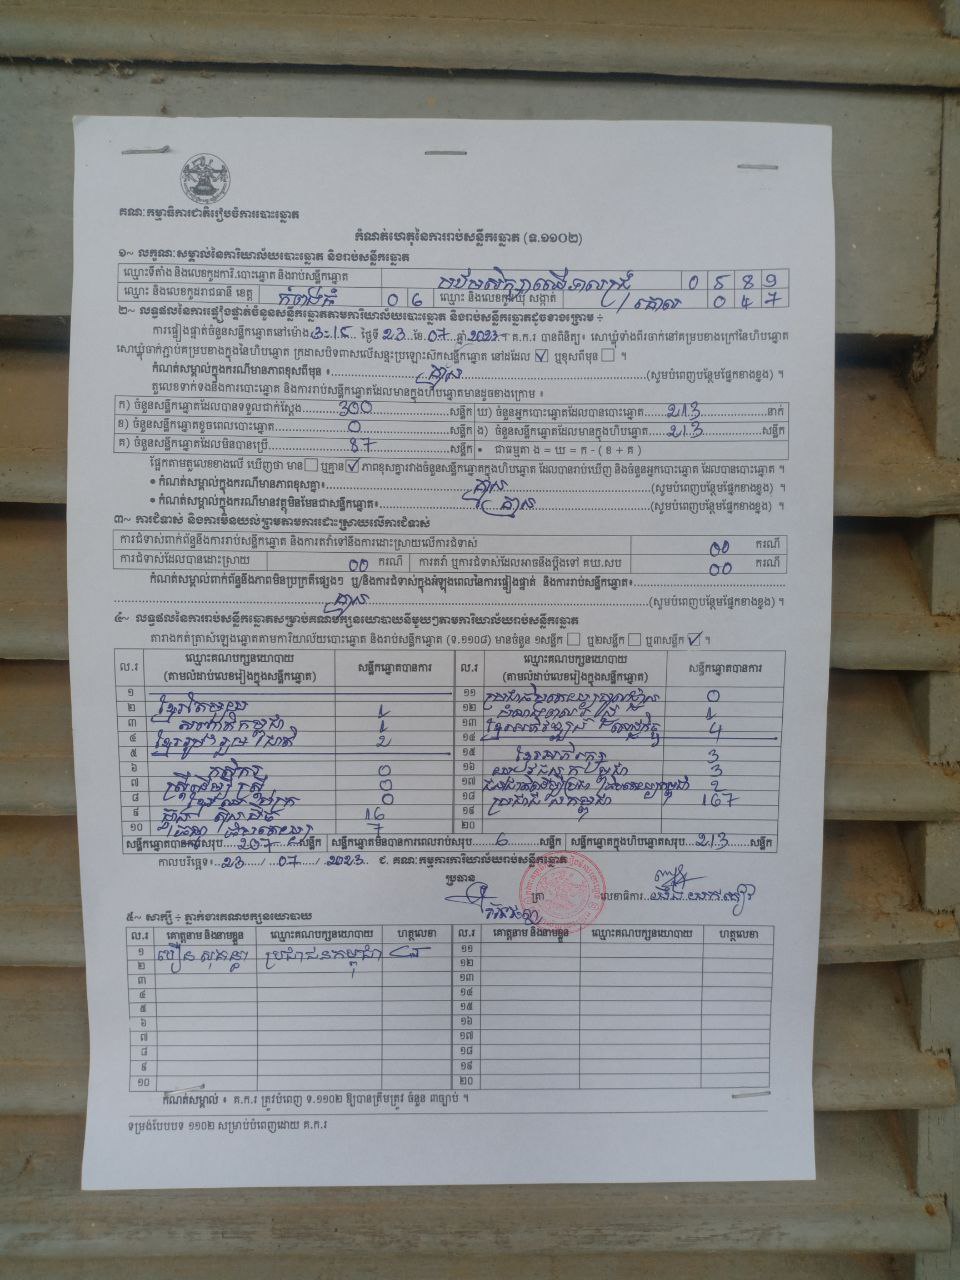 គណៈកម្មាធិការជាតិរៀបចំការបោះឆ្នោត
កំណត់ហេតុនៃការរាប់សន្លឹកឆ្នោត (ទ.១១០២)
១~ លក្ខណៈសម្គាល់នៃការិយាល័យបោះឆ្នោត និងរាប់សន្លឹកឆ្នោត
ឈ្មោះទីតាំង និងលេខកូដការិ.បោះឆ្នោត និងរាប់សន្លឹកឆ្នោត 0 5 8 9
ឈ្មោះ និងលេខកូដរាជធានី ខេត្ត កំពង់ធំ 0 6 ឈ្មោះ និងលេខកូដឃុំ សង្កាត់ 0 4 7
២~ លទ្ធផលនៃការផ្ទៀងផ្ទាត់ចំនួនសន្លឹកឆ្នោតតាមការិយាល័យបោះឆ្នោត និងរាប់សន្លឹកឆ្នោតដូចខាងក្រោម ÷
ការផ្ទៀងផ្ទាត់ចំនួនសន្លឹកឆ្នោតនៅម៉ោង ថ្ងៃទី 23 ខែ 07 ឆ្នាំ 2023។ គ.ក.រ បានពិនិត្យ៖ សោឃ្លុំទាំងពីរចាក់នៅគម្របខាងក្រៅនៃហិបឆ្នោត
សោឃ្លុំចាក់ភ្ជាប់គម្របខាងក្នុងនៃហិបឆ្នោត ក្រដាសបិទពាសលើសន្ទះប្រឡោះស៊កសន្លឹកឆ្នោត នៅដដែល ☑ ឬខុសពីមុន ☐ ។
កំណត់សម្គាល់ក្នុងករណីមានភាពខុសពីមុន ៖ គ្មាន (សូមបំពេញបន្ថែមផ្នែកខាងខ្នង) ។
តួលេខទាក់ទងនឹងការបោះឆ្នោត និងការរាប់សន្លឹកឆ្នោតដែលមានក្នុងហិបឆ្នោតមានដូចខាងក្រោម ៖
ក) ចំនួនសន្លឹកឆ្នោតដែលបានទទួលជាក់ស្តែង 300 សន្លឹក ឃ) ចំនួនអ្នកបោះឆ្នោតដែលបានបោះឆ្នោត 213 នាក់
ខ) ចំនួនសន្លឹកឆ្នោតខូចពេលបោះឆ្នោត 0 សន្លឹក ង) ចំនួនសន្លឹកឆ្នោតដែលមានក្នុងហិបឆ្នោត 213 សន្លឹក
គ) ចំនួនសន្លឹកឆ្នោតដែលមិនបានប្រើ 87 សន្លឹក • ជាធម្មតា ង = ឃ = ក - ( ខ + គ )
ផ្អែកតាមតួលេខខាងលើ ឃើញថា មាន ☐ ឬគ្មាន ☑ ភាពខុសគ្នារវាងចំនួនសន្លឹកឆ្នោតក្នុងហិបឆ្នោត ដែលបានរាប់ឃើញ និងចំនួនអ្នកបោះឆ្នោត ដែលបានបោះឆ្នោត ។
• កំណត់សម្គាល់ក្នុងករណីមានភាពខុសគ្នា៖ គ្មាន (សូមបំពេញបន្ថែមផ្នែកខាងខ្នង) ។
• កំណត់សម្គាល់ក្នុងករណីមានវត្ថុមិនមែនជាសន្លឹកឆ្នោត៖ គ្មាន (សូមបំពេញបន្ថែមផ្នែកខាងខ្នង) ។
៣~ ការជំទាស់ និងការមិនយល់ព្រមតាមការដោះស្រាយលើការជំទាស់
ការជំទាស់ពាក់ព័ន្ធនឹងការរាប់សន្លឹកឆ្នោត និងការតវ៉ាទៅនឹងការដោះស្រាយលើការជំទាស់ 00 ករណី
ការជំទាស់ដែលបានដោះស្រាយ 00 ករណី ការតវ៉ា ឬការជំទាស់ដែលអាចនឹងប្តឹងទៅ គឃ.សប 00 ករណី
កំណត់សម្គាល់ពាក់ព័ន្ធនឹងភាពមិនប្រក្រតីផ្សេងៗ ឬ/និងការជំទាស់ក្នុងអំឡុងពេលនៃការផ្ទៀងផ្ទាត់ និងការរាប់សន្លឹកឆ្នោត៖
គ្មាន (សូមបំពេញបន្ថែមផ្នែកខាងខ្នង) ។
៤~ លទ្ធផលនៃការរាប់សន្លឹកឆ្នោតសម្រាប់គណបក្សនយោបាយនីមួយៗតាមការិយាល័យរាប់សន្លឹកឆ្នោត
តារាងកត់ត្រាសំឡេងឆ្នោតតាមការិយាល័យបោះឆ្នោត និងរាប់សន្លឹកឆ្នោត (ទ.១១០៨) មានចំនួន ១សន្លឹក ☐ ឬ២សន្លឹក ☐ ឬ៣សន្លឹក ☑ ។
ល.រ ឈ្មោះគណបក្សនយោបាយ (តាមលំដាប់លេខរៀងក្នុងសន្លឹកឆ្នោត) សន្លឹកឆ្នោតបានការ ល.រ ឈ្មោះគណបក្សនយោបាយ (តាមលំដាប់លេខរៀងក្នុងសន្លឹកឆ្នោត) សន្លឹកឆ្នោតបានការ
១ ១១ 0
២ 1 ១២ 1
៣ 1 ១៣ 4
៤ ខ្មែររួបរួមជាតិ 2 ១៤
៥ ១៥ 3
៦ កសិករ 0 ១៦ 3
៧ ស្ត្រីដើម្បីស្ត្រី 0 ១៧ 2
៨ 0 ១៨ ប្រជាជនកម្ពុជា 167
៩ 16 ១៩
១០ 7 ២០
សន្លឹកឆ្នោតបានការសរុប 207 សន្លឹក សន្លឹកឆ្នោតមិនបានការពេលរាប់សរុប 6 សន្លឹក សន្លឹកឆ្នោតក្នុងហិបឆ្នោតសរុប 213 សន្លឹក
កាលបរិច្ឆេទ៖ 23 / 07 / 2023 ជ. គណៈកម្មការការិយាល័យរាប់សន្លឹកឆ្នោត
ប្រធាន ត្រា លេខាធិការ
៥~ សាក្សី ÷ ភ្នាក់ងារគណបក្សនយោបាយ
ល.រ គោត្តនាម និងនាមខ្លួន ឈ្មោះគណបក្សនយោបាយ ហត្ថលេខា ល.រ គោត្តនាម និងនាមខ្លួន ឈ្មោះគណបក្សនយោបាយ ហត្ថលេខា
១ ប្រជាជនកម្ពុជា ១១
២ ១២
៣ ១៣
៤ ១៤
៥ ១៥
៦ ១៦
៧ ១៧
៨ ១៨
៩ ១៩
១០ ២០
កំណត់សម្គាល់ ៖ គ.ក.រ ត្រូវបំពេញ ទ.១១០២ ឱ្យបានត្រឹមត្រូវ ចំនួន ៣ច្បាប់ ។
ទម្រង់បែបបទ ១១០២ សម្រាប់បំពេញដោយ គ.ក.រ